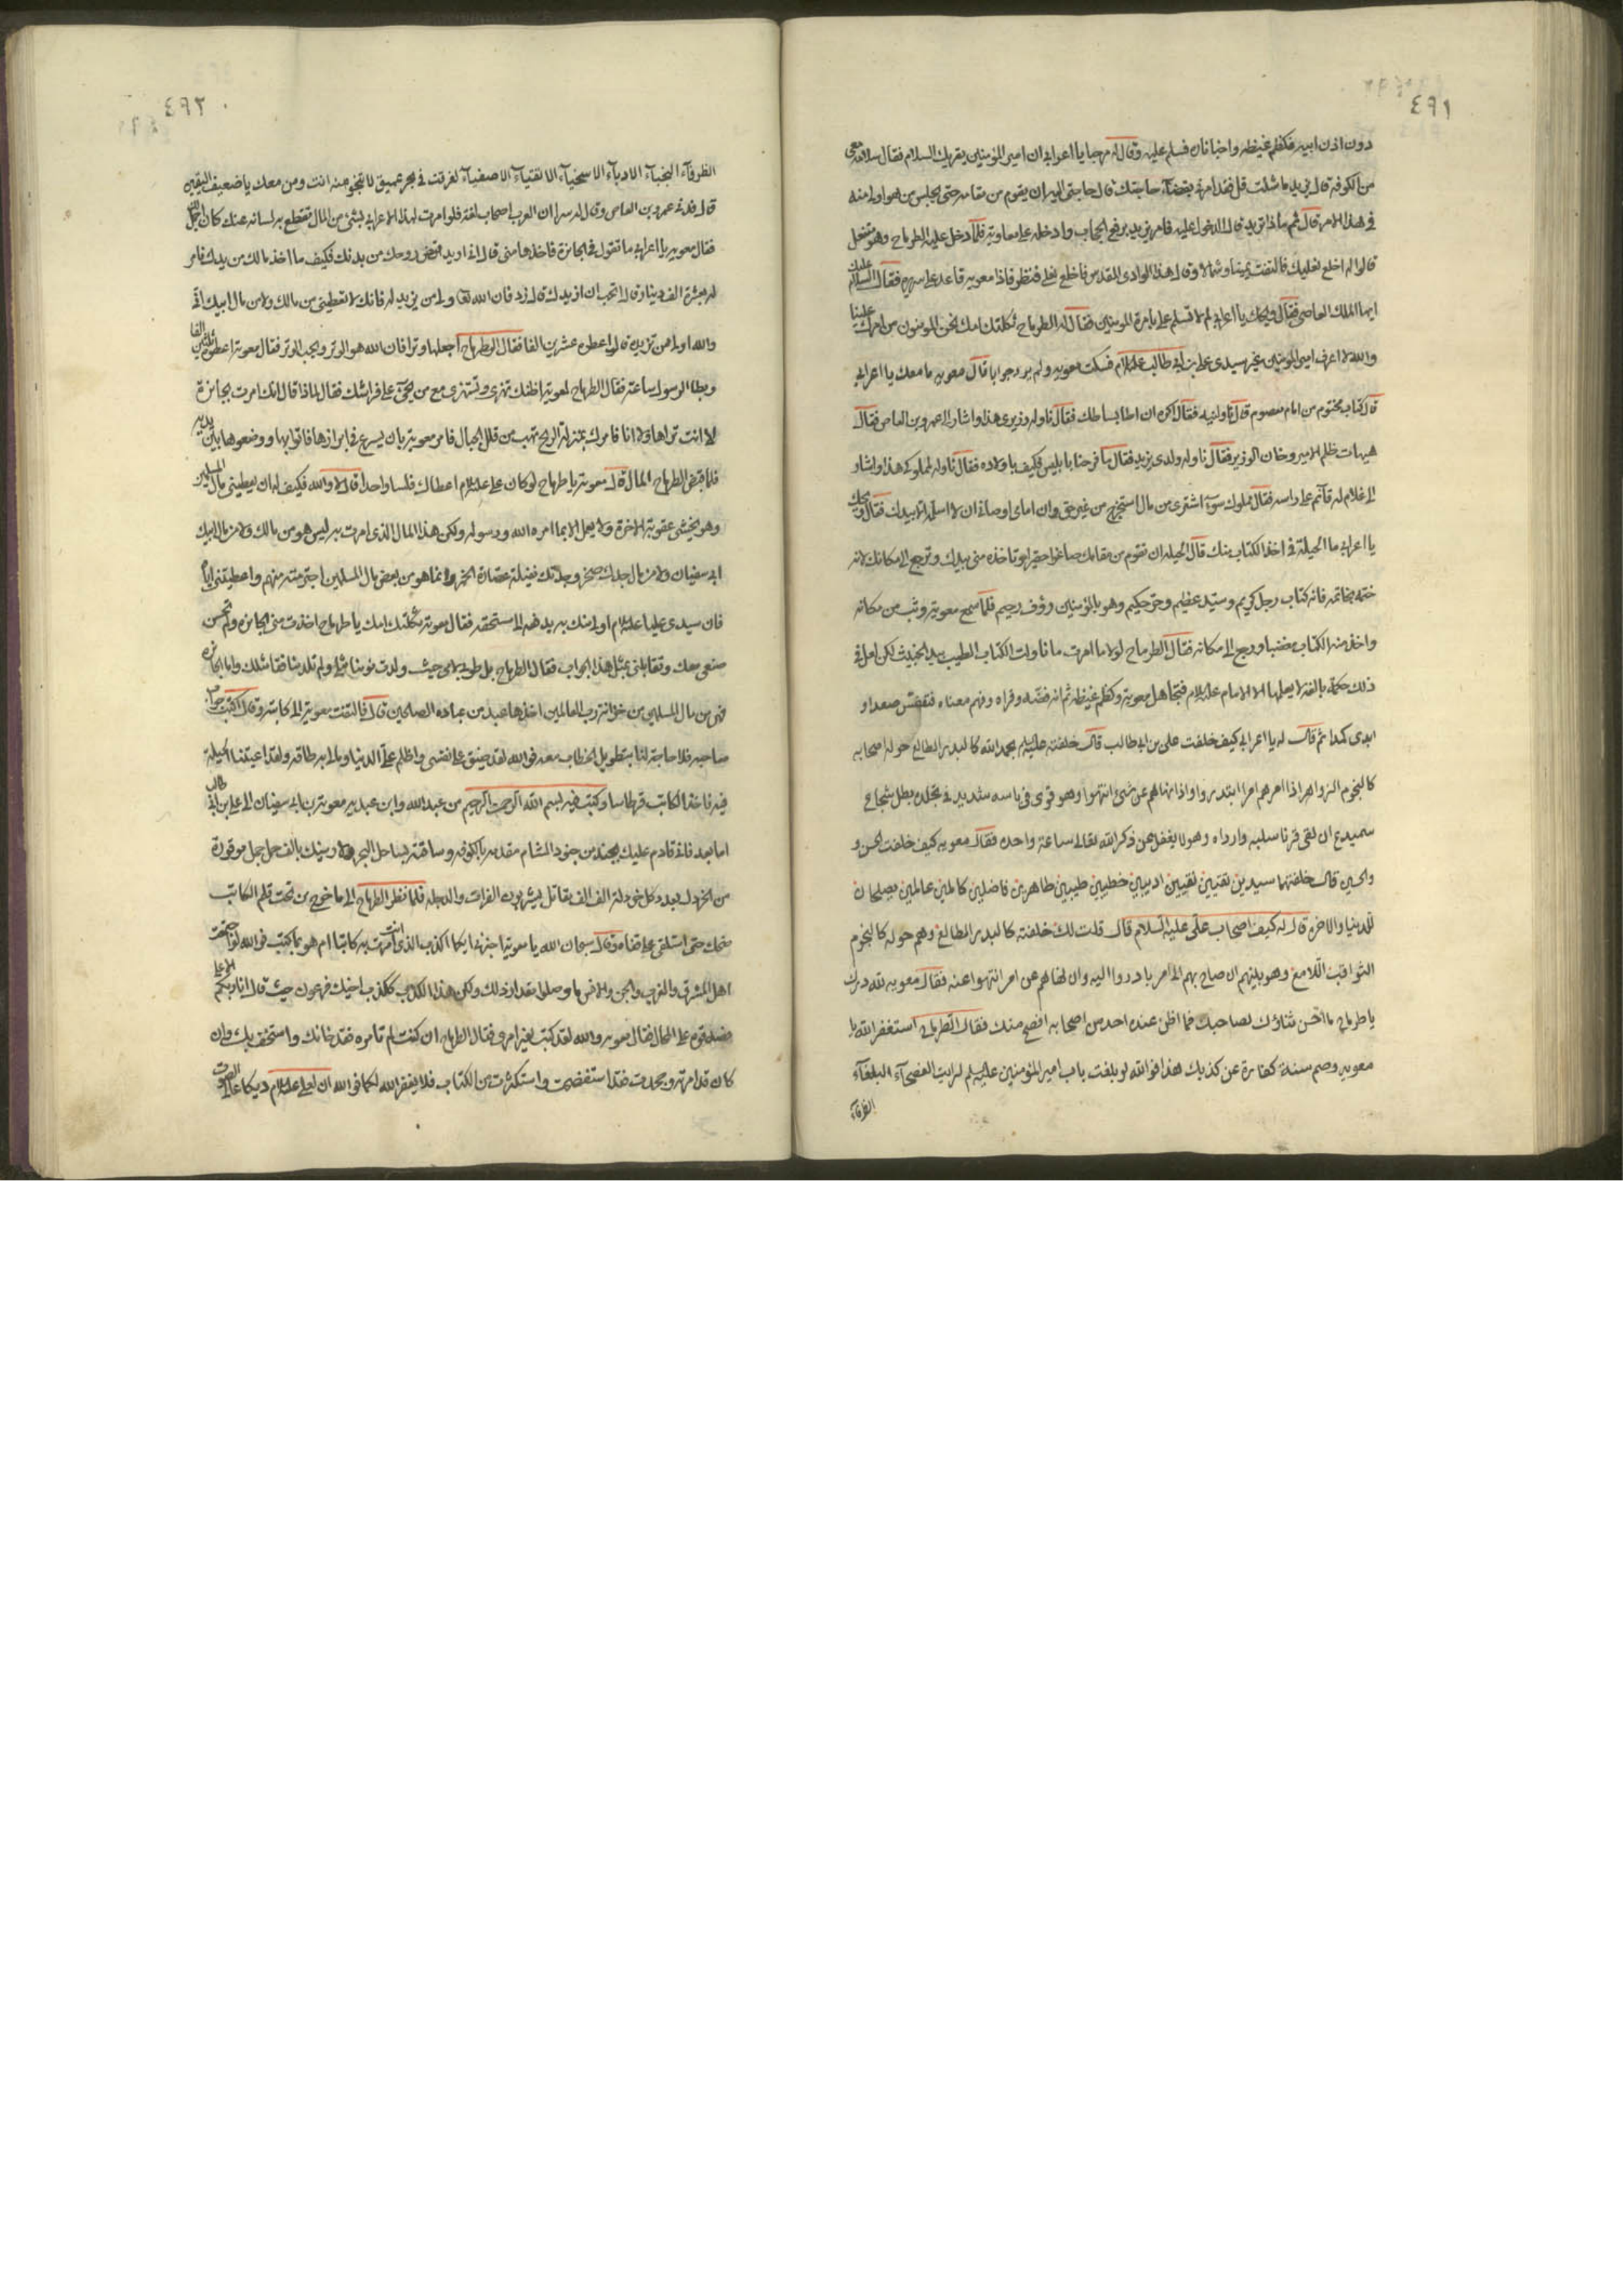 ٤٩١
دون اذن ابيه فكظم غيظه واخبا ناره فسلم عليه وقال له مرحبا يا اعرابي ان امير المؤمنين يقريك السلام فقال سلامه معي
من الكوفة قال يزيد ما شئت قل فقد امرني بقضاء حاجتك قال حاجتي اليه ان يقوم من مقامه حتى يجلس من هو اولى منه
في هذا الامر قال ثم ماذا تريد قال الدخول عليه فامر يزيد برفع الحجاب وادخله على معاوية فلما دخل عليه الطرماح وهو متنعل
قالوا له اخلع نعليك فالتفت يمينا وشمالا وقال هذا الوادي المقدس فاخلع نعلي فنظر فاذا معويه قاعد على سريره فقال السلام عليك
ايها الملك العاصي فقال ويحك يا اعرابي لم لا تسلم علي بامرة المؤمنين فقال له الطرماح ثكلتك امك نحن المؤمنون من امرك علينا
والله لا اعرف امير المؤمنين غير سيدي علي بن ابي طالب عليه السلام فسكت معويه ولم يرد جوابا قال معويه ما معك يا اعرابي
قال كتاب مختوم من امام معصوم قال ناولنيه فقال اكره ان اطا بساطك فقال ناوله وزيري هذا واشار الى عمرو بن العاص فقال
هيهات ظلم الامير وخان الوزير فقال ناوله ولدي يزيد فقال ما فرحنا بابليس فكيف باولاده فقال ناوله لمملوكي هذا واشار
الى غلام له قائم على راسه فقال مملوك سوء اشتري من مال استخرج من غير حق وان امامي اوصاني ان لا اسلمه الا بيدك فقال ويحك
يا اعرابي ما الحيلة في اخذ الكتاب منك قال الحيلة ان تقوم من مقامك صاغرا حقيرا وتاخذه مني بيدك وترجع الى مكانك لانه
ختمه بخاتمه فانه كتاب رجل كريم وسيد عظيم وحق حكيم وهو بالمؤمنين رؤف رحيم فلما سمع معويه وثب من مكانه
واخذ منه الكتاب مغضبا ورجع الى مكانه فقال الطرماح لولا ما امرت ما ناولت الكتاب الطيب بيد الخبيث لكن لعل في
ذلك حكمة بالغة لا يعلمها الا الامام عليه السلام فتجاهل معويه وكظم غيظه ثم انه فضه وقراه وفهم معناه فتنفس صعدا و
ابدى كمدا ثم قال له يا اعرابي كيف خلفت علي بن ابي طالب قال خلفته عليه السلام بحمد الله كالبدر الطالع حوله اصحابه
كالنجوم الزواهر اذا امرهم امرا ابتدروا واذا نهاهم عن شئ انتهوا وهو قوي في باسه شديد في تجلده بطل شجاع
سميدع ان لقي قرنا سلبه وارداه وهو لا يغفل عن ذكر الله تعالى ساعة واحده فقال معويه كيف خلفت الحسن و
والحسين قال خلفتهما سيدين نقيين تقيين اديبين خطيبين طيبين طاهرين فاضلين كاملين عالمين يصلحان
للدنيا والاخرة قال له كيف اصحاب علي عليه السلام قال قلت لك خلفته كالبدر الطالع وهم حوله كالنجوم
الثواقب اللامع وهو بينهم ان صاح بهم الى امر بادروا اليه وان نهاهم عن امر انتهوا عنه فقال معويه لله درك
يا طرماح ما احسن ثناؤك لصاحبك فما اظن عنده احد من اصحابه افصح منك فقال الطرماح استغفر الله يا
معويه وصم سنة كفارة عن كذبك هذا فوالله لو بلغت باب امير المؤمنين عليه السلام لرايت الفصحاء البلغاء
الظرفاء
٤٩٢
الظرفاء النجباء الادباء الاسخياء الاتقياء الاصفياء لغرقت في بحر عميق لا تنجو منه انت ومن معك يا ضعيف اليقين
قال فدنى عمرو بن العاص وقال له سرا ان العرب اصحاب لغة فلو امرت لهذا الاعرابي بشئ من المال تقطع به لسانه عنك كان اجمل
فقال معويه يا اعرابي ما تقول في الجائزة تاخذها مني قال اني اريد اقبض روحك من بدنك فكيف ما اخذ مالك من يدك فامر
له بعشرة الف دينار وقال اتحب ان ازيدك قال زد فان الله تعالى ولي من يزيد له فانك لا تعطيني من مالك ولا من مال ابيك اني
والله اولى من تزيده قال اعطوه عشرين الفا فقال الطرماح اجعلها وترا فان الله هو الوتر ويحب الوتر فقال معويه اعطوه ثلثين الفا
وبطا الرسول ساعة فقال الطرماح لمعوية اظنك تهزئ وتستهزئ مع من يجئ على فراشك فقال لماذا قال انك امرت بجائزة
لا انت تراها ولا انا فامرك بمنزلة الريح تهب من قلل الجبال فامر معوية بان يسرع في ابرازها فاتوا بها ووضعوها بين يديه
فلما قبض الطرماح المال قال معوية يا طرماح لو كان علي عليه السلام اعطاك فلسا واحدا قال لا والله فكيف له ان يعطيني مال المسلمين
وهو يخشى عقوبة الاخرة ولا يعمل الا بما امره الله ورسوله ولكن هذا المال الذي امرت به ليس هو من مالك ولا من مال ابيك
ابي سفيان ولا من مال جدك صخر وجدتك عصارة الخمر وانما هو من بعض مال المسلمين اجترمته منهم واعطيتني اياه
فان سيدي عليا عليه السلام اولى منك به يدفعه الى مستحقه فقال معوية ثكلتك امك يا طرماح اخذت مني الجائزة ولم تحسن
صنعي معك وتقابلني بمثل هذا الجواب فقال الطرماح بل طوبى لامي حيث ولدت مؤمنا مثلي ولم تلد منافقا مثلك واما الجائزة
فهي من مال المسلمين من خزانة رب العالمين اخذها عبد من عباده الصالحين قال فالتفت معوية الى كاتبه وقال اكتب جواب
صاحبه فلا حاجة لنا بتطويل الخطاب معه فوالله لقد ضيق على نفسي واظلم علي الدنيا وما لي به طاقه ولقد اعيتنا الحيلة
فيه فاخذ الكاتب قرطاسا وكتب فيه بسم الله الرحمن الرحيم من عبد الله وابن عبده معوية بن ابي سفيان الى علي بن ابي طالب
اما بعد فاني قادم عليك بجند من جنود الشام مقدمه بالكوفه وساقته بساحل البحر ولا رمينك بالف حمل جمل موقورة
من الخردل بعدد كل خردلة الف الف مقاتل يشربون الفرات والدجله فلما نظر الطرماح الى ما خرج من تحت قلم الكاتب
ضحك حتى استلقى على قفاه وقال سبحان الله يا معوية اكذب الذي انت امرت به كاتبا ام هو بما كتب فوالله لو اجتمعت
اهل المشرق والمغرب والجن والانس ما وصلوا مقدار ذلك ولكن هذا الكذب ككذب اخيك فرعون حيث قال انا ربكم الاعلى
فضحك قوم على الحال فقال معويه والله لقد كتب بغير امري فقال الطرماح ان كنت لم تامره فقد خانك واستخف بك وان
كان قد امرته وجحدت فقد استفضحت واستكثرت من الكتاب فلا يغفر الله لكما فوالله ان لعلي عليه السلام ديكا عالي الصوت